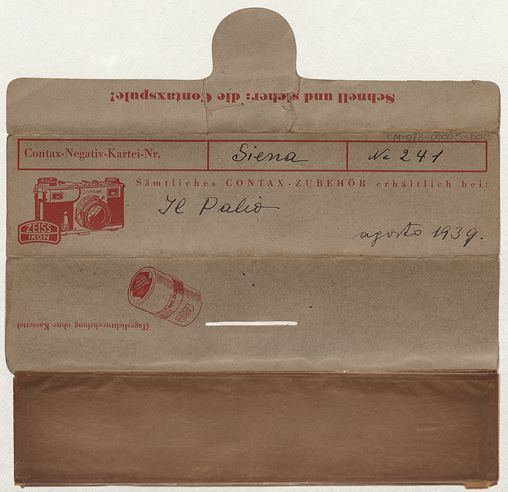 Schnell und sicher: die Contaxspule!
CM-073-00005-DOC
Contax-Negativ-Kartei-Nr. Siena № 241
Sämtliches CONTAX-ZUBEHÖR erhältlich bei:
Contax
ZEISS
IKON
Il Palio
agosto 1939.
(Tageslichtwechslung ohne Kassette)